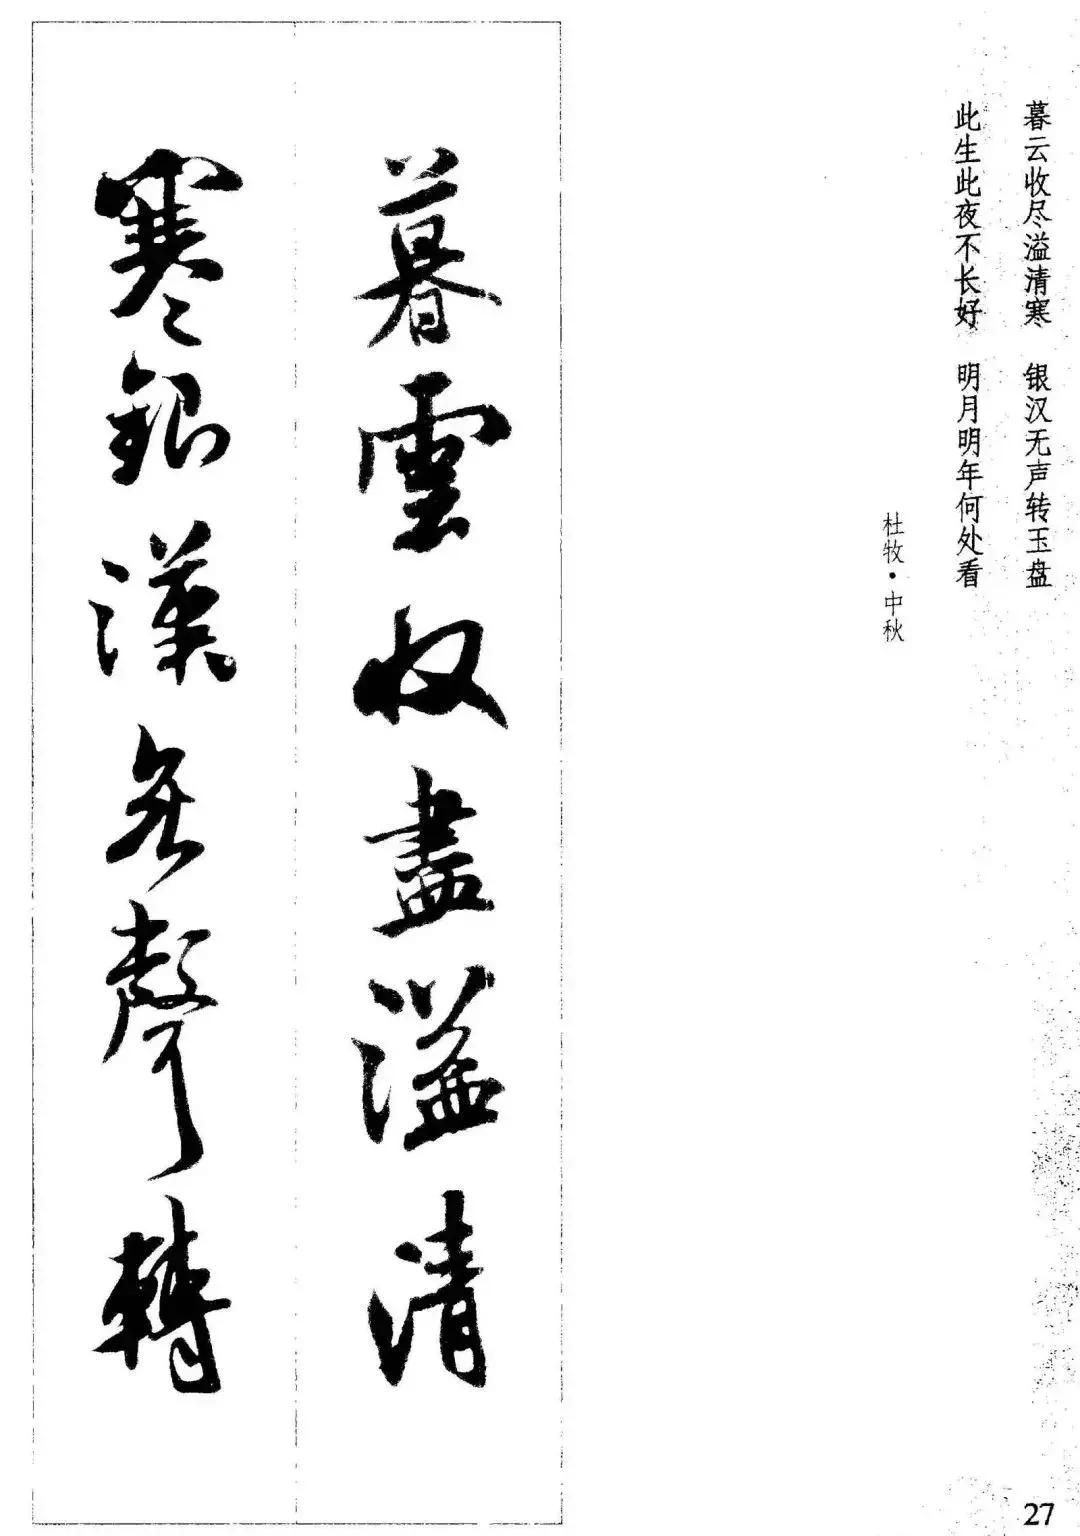 暮云收尽溢清寒 银汉无声转玉盘
此生此夜不长好 明月明年何处看
杜牧·中秋
暮雲收盡溢清
寒銀漢無聲轉
27